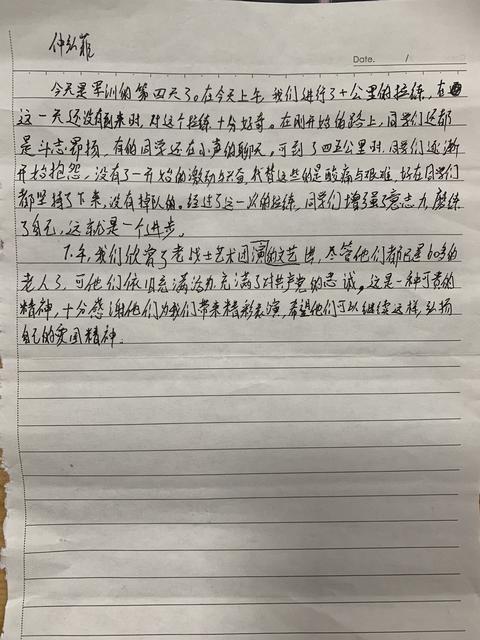 仲弘菲
Date. /
今天是军训的第四天了。在今天上午,我们进行了十公里的拉练,在
这一天还没有到来时,对这个拉练十分好奇。在刚开始的路上,同学们还都
是斗志昂扬,有的同学还在小声的聊天,可到了四五公里时,同学们逐渐
开始抱怨,没有了一开始的激动与兴奋,代替这些的是酸痛与艰难,好在同学们
都坚持了下来,没有掉队的。经过了这一次的拉练,同学们增强了意志力,磨练
了自己,这就是一个进步。
下午,我们欣赏了老战士艺术团演的文艺,尽管他们都已是60多的
老人了,可他们依旧充满活力,充满了对共产党的忠诚。这是一种可贵的
精神,十分感谢他们为我们带来精彩表演,希望他们可以继续这样,弘扬
自己的爱国精神。